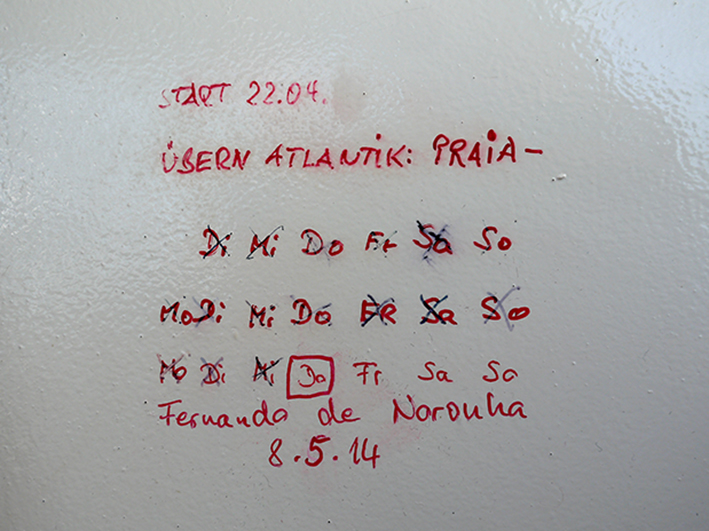 START 22.04.
ÜBERN ATLANTIK: PRAIA –
Di Mi Do Fr Sa So
Mo Di Mi Do FR Sa So
Mo Di Mi Do Fr Sa So
Fernando de Noronha
8.5.14